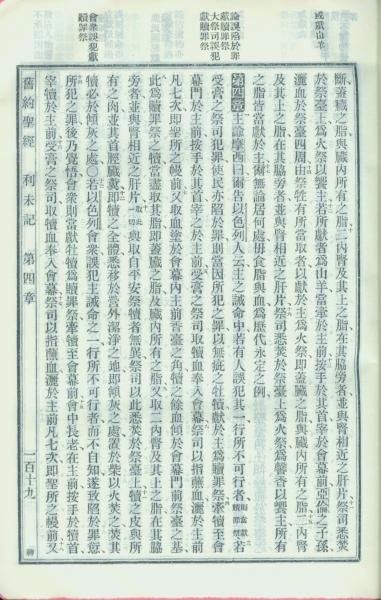 或獻山羊
論誤陷於罪
獻贖罪祭
大祭司誤犯
獻贖罪祭
會衆誤犯獻
贖罪祭
斷蓋臟之脂與臟內所有之脂二內腎及其上之脂在其脇旁者並與腎相近之肝片祭司悉焚
於祭臺上爲火祭以饗主若所獻者爲山羊當牽於主前按手於其首宰於會幕前亞倫之子孫
灑血於祭臺四周由祭牲有所當取者以獻於主爲火祭即蓋臟之脂與臟內所有之脂二內腎
及其上之脂在其脇旁者並與腎相近之肝片祭司悉焚於祭臺上爲火祭爲馨香以饗主所有
之脂皆當獻於主爾無論居何處毋食脂與血爲歷代永定之例
第四章 主諭摩西曰爾告以色列人云主之誡命中若有人誤犯其一行所不可行者則當獻贖罪祭若
受膏之祭司犯罪使民亦陷於罪則當因所犯之罪以無疵之牡犢獻於主爲贖罪祭牽犢至會
幕門於主前按手於其首宰之於主前受膏之祭司取犢血奉入會幕祭司以指蘸血灑於主前
凡七次即聖所之幔前又取血塗於會幕內主前香臺之角犢之餘血傾於會幕門前祭臺之基
此爲贖罪祭之犢當盡取其脂即蓋臟之脂及臟內所有之脂又取二內腎及其上之脂在其脇
旁者並與腎相近之肝片取一切與取自平安祭犢者無異祭司以此悉焚於祭臺上犢之皮與所
有之肉並其首脛臟糞即犢之全體悉移於營外潔淨之地即傾灰之處置於柴以火焚之焚其
犢必於傾灰之處○若以色列會衆誤犯主誡命之一行所不可行者而不自知遂致陷於罪意
所犯之罪後乃覺悟會衆則當獻牡犢爲贖罪祭牽犢至會幕前會中長老在主前按手於犢首
宰犢於主前受膏之祭司取犢血奉入會幕祭司以指蘸血灑於主前凡七次即聖所之幔前又
舊約聖經 利未記 第四章 一百十九